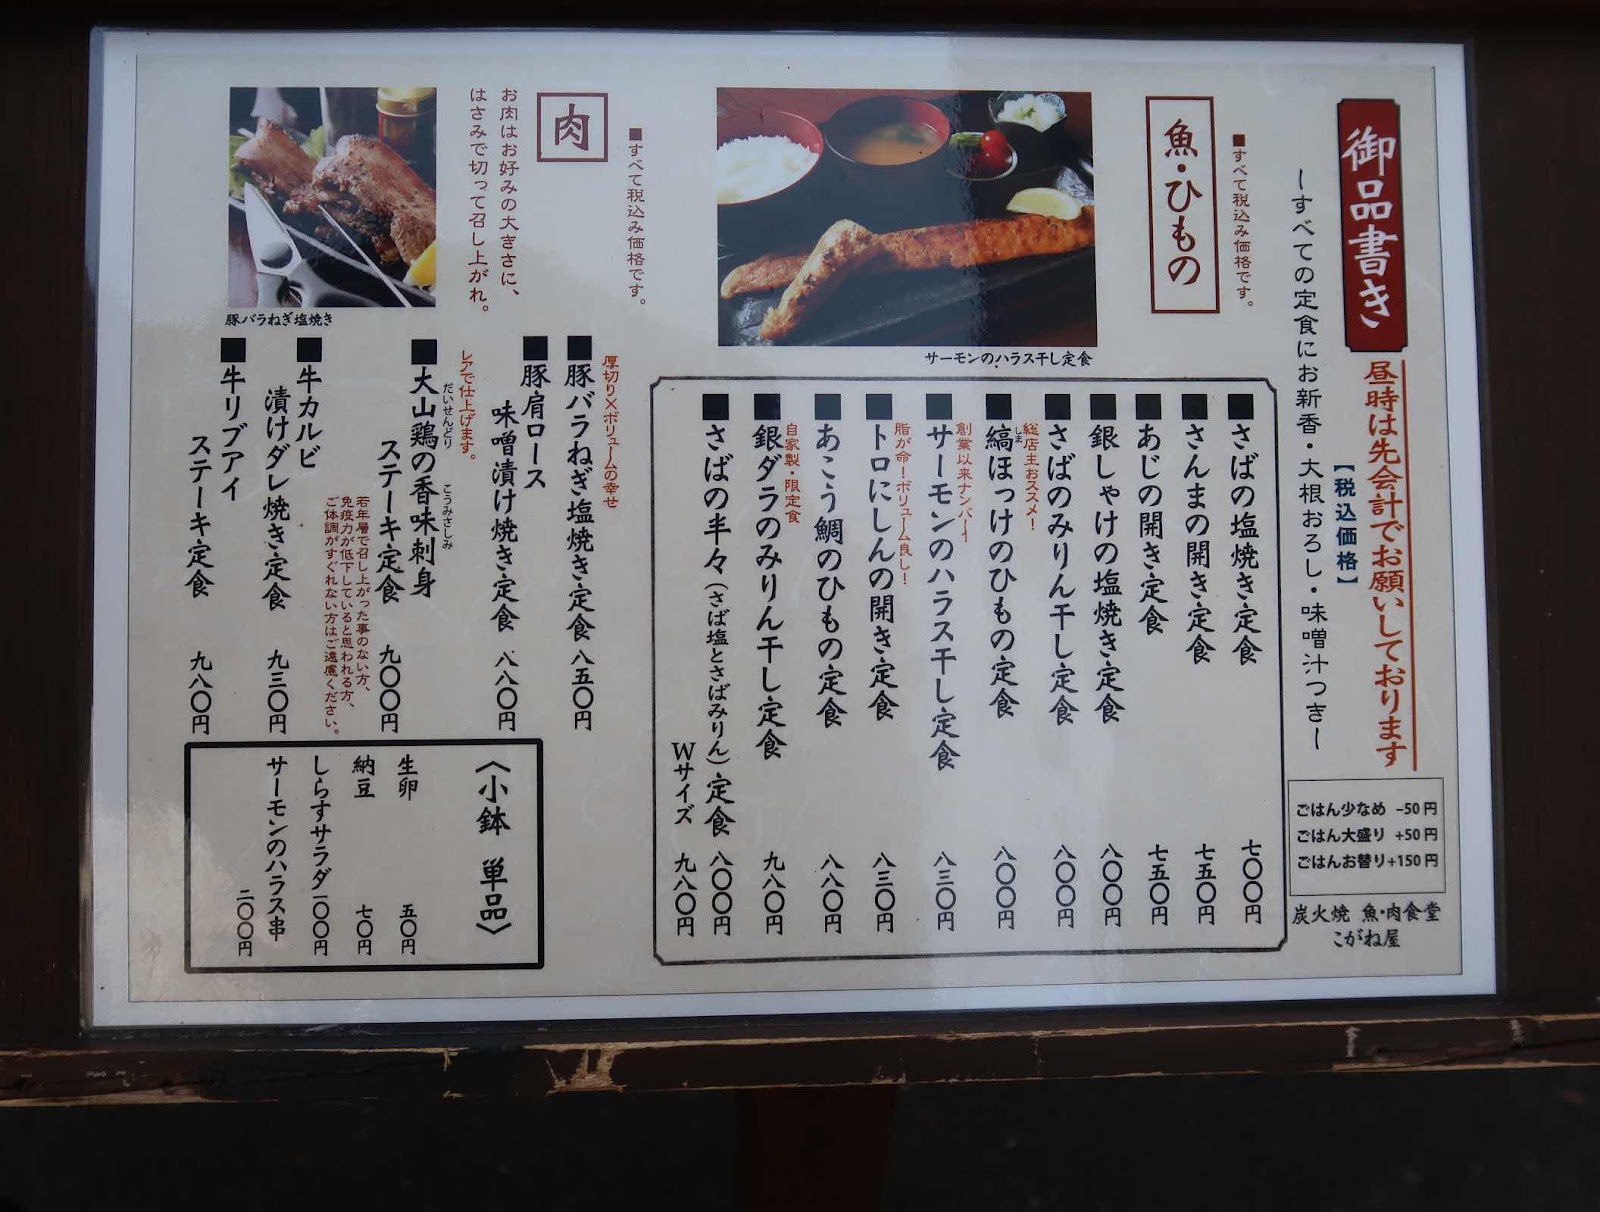 御品書き
昼時は先会計でお願いしております
【税込価格】
ーすべての定食にお新香・大根おろし・味噌汁つきー
ごはん少なめ -50円
ごはん大盛り +50円
ごはんお替り+150円
炭火焼 魚・肉食堂
こがね屋
■すべて税込み価格です。
魚・ひもの
サーモンのハラス干し定食
■さばの塩焼き定食 七〇〇円
■さんまの開き定食 七五〇円
■あじの開き定食 七五〇円
■銀しゃけの塩焼き定食 八〇〇円
■さばのみりん干し定食 八〇〇円
総店主おススメ!
■縞ほっけのひもの定食 八〇〇円
しま
創業以来ナンバー1
■サーモンのハラス干し定食 八三〇円
脂が命!ボリューム良し!
■トロにしんの開き定食 八三〇円
■あこう鯛のひもの定食 八八〇円
自家製・限定食
■銀ダラのみりん干し定食 九八〇円
■さばの半々(さば塩とさばみりん)定食 八〇〇円
Wサイズ 九八〇円
■すべて税込み価格です。
肉
お肉はお好みの大きさに、
はさみで切って召し上がれ。
豚バラねぎ塩焼き
厚切り×ボリュームの幸せ
■豚バラねぎ塩焼き定食 八五〇円
■豚肩ロース
味噌漬け焼き定食 八八〇円
レアで仕上げます。
だいせんどり こうみさしみ
■大山鶏の香味刺身
ステーキ定食 九〇〇円
若年層で召し上がった事のない方、
免疫力が低下していると思われる方、
ご体調がすぐれない方はご遠慮ください。
■牛カルビ
漬けダレ焼き定食 九三〇円
■牛リブアイ
ステーキ定食 九八〇円
〈小鉢 単品〉
生卵 五〇円
納豆 七〇円
しらすサラダ 一〇〇円
サーモンのハラス串
二〇〇円